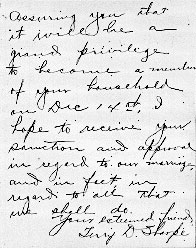 Assuring you that
it will be a
grand privilege
to become a member
of your household
on Dec 14th. I
hope to receive your
sanction and approval
in regard to our marriage,
and in fact in
regard to all that
we shall do
Your esteemed friend,
Terry D. Thorpe